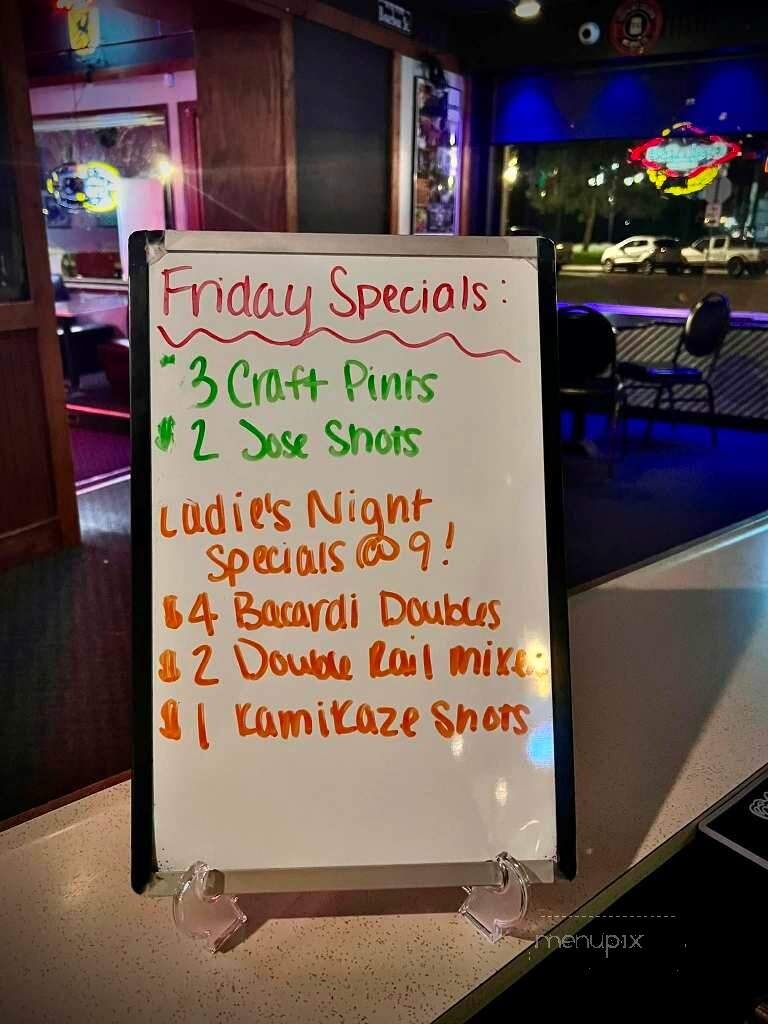 Friday Specials:
$3 Craft Pints
$2 Jose Shots
Ladie's Night
Specials @ 9!
$4 Bacardi Doubles
$2 Double Rail mixed
$1 Kamikaze Shots
menupix